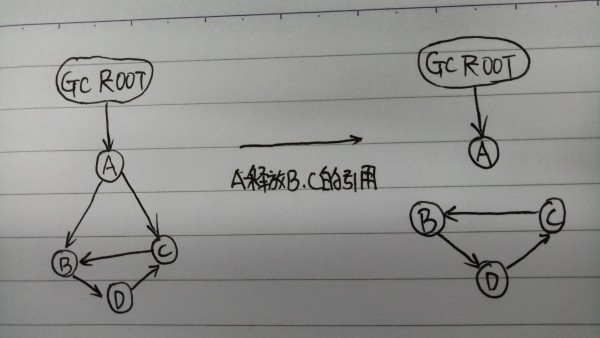 GC ROOT
A
B
C
D
A释放B.C的引用
GC ROOT
A
B
C
D